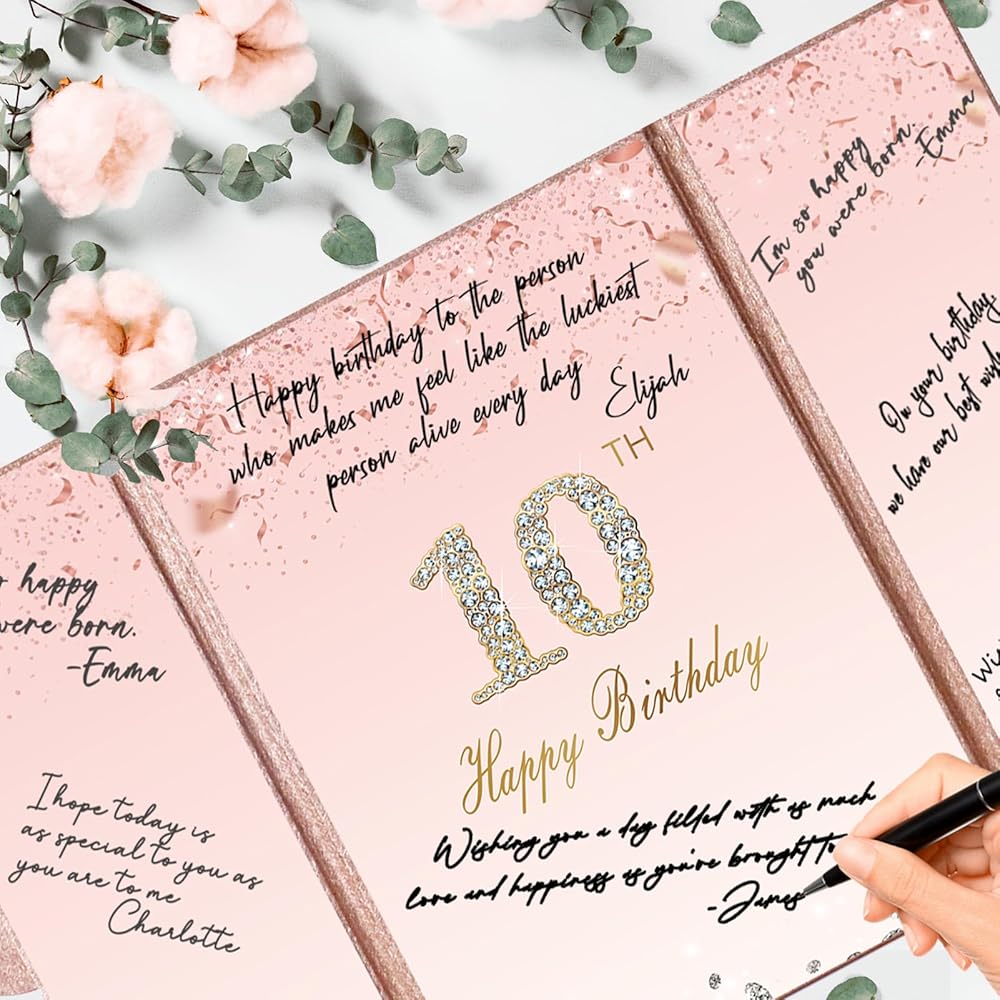 Happy birthday to the person
who makes me feel like the luckiest
person alive every day
Elijah
10TH
Happy Birthday
Wishing you a day filled with as much
love and happiness as you're brought to
-James
happy
were born.
-Emma
I hope today is
as special to you as
you are to me
Charlotte
I'm so happy
you were born.
-Emma
On your birthday,
we have our best